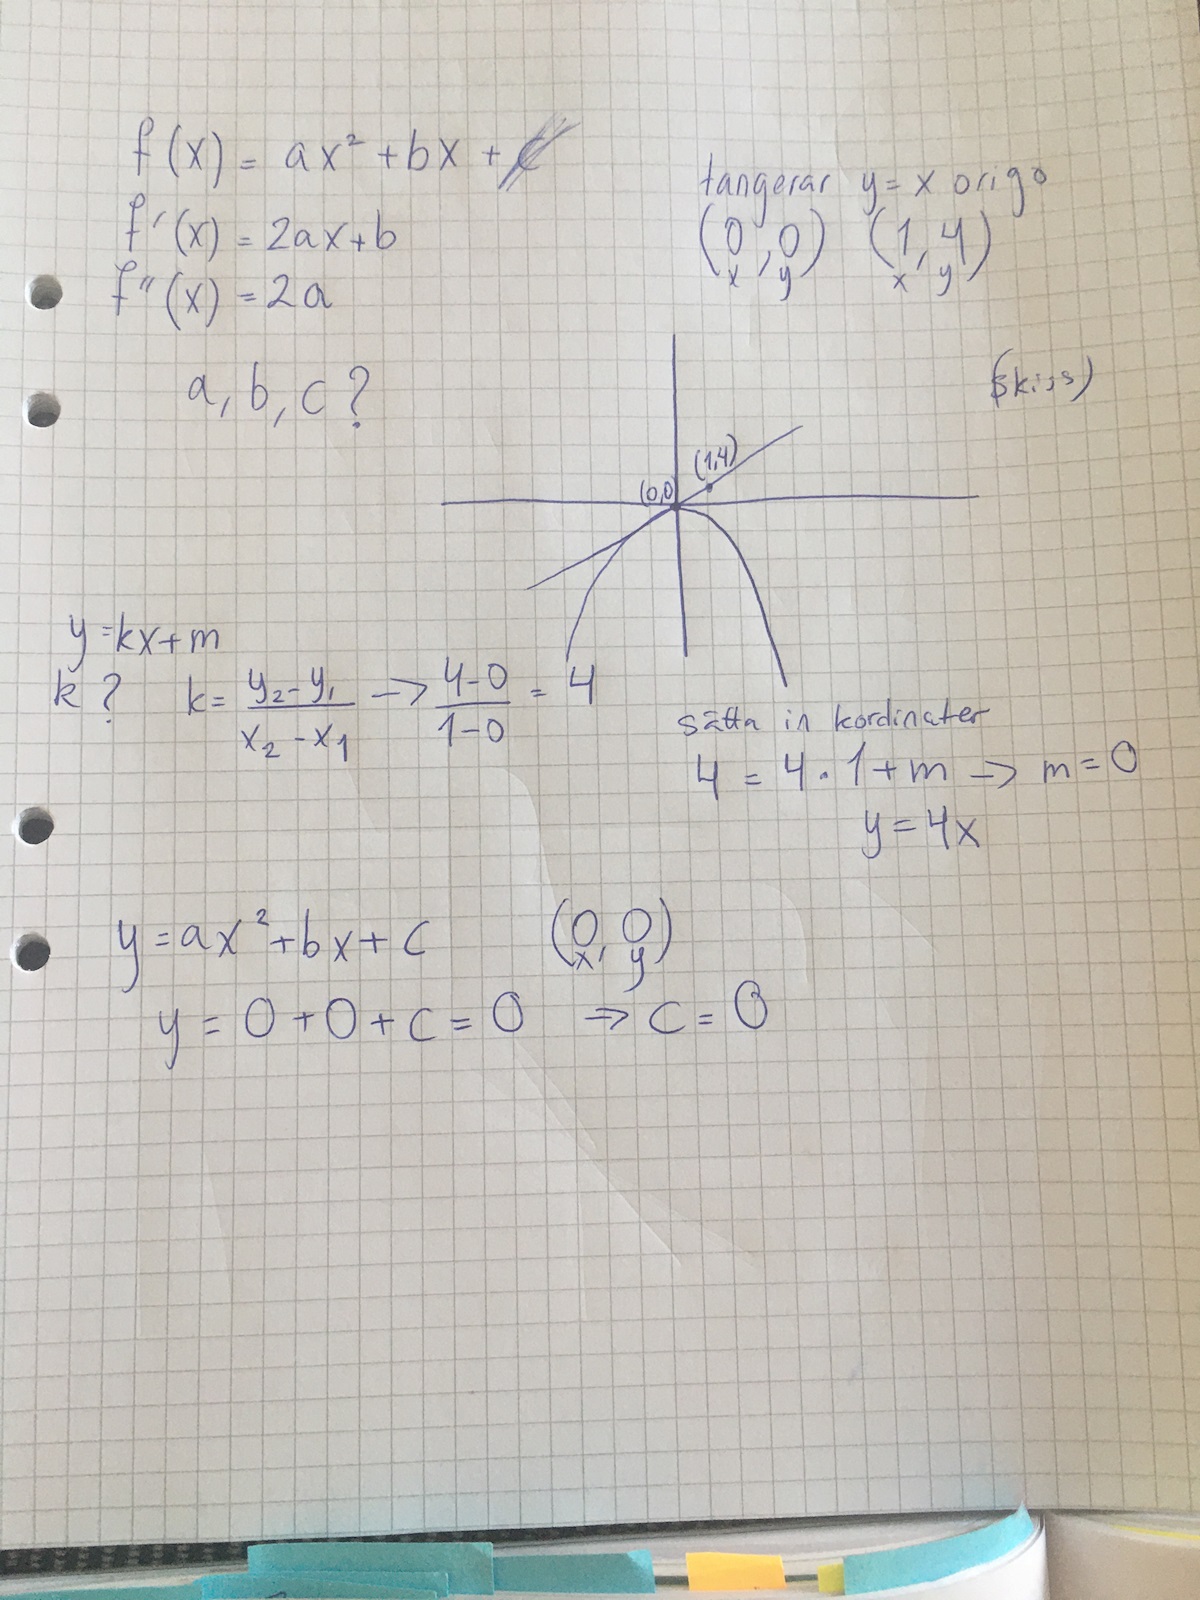 f(x) = ax² + bx + c
f'(x) = 2ax+b
f''(x) = 2a
a, b, c ?
tangerar y = x origo
(0, 0) (1, 4)
x y x y
(skiss)
(1,4)
(0,0)
y = kx + m
k ? k = (y₂ - y₁)/(x₂ - x₁) → (4-0)/(1-0) = 4
sätta in kordinater
4 = 4 · 1 + m → m = 0
y = 4x
y = ax² + bx + c (0, 0)
x, y
y = 0 + 0 + c = 0 ⇒ c = 0